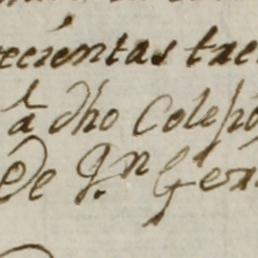 ecientas tre
â dho Colejo
De Sn. Ger